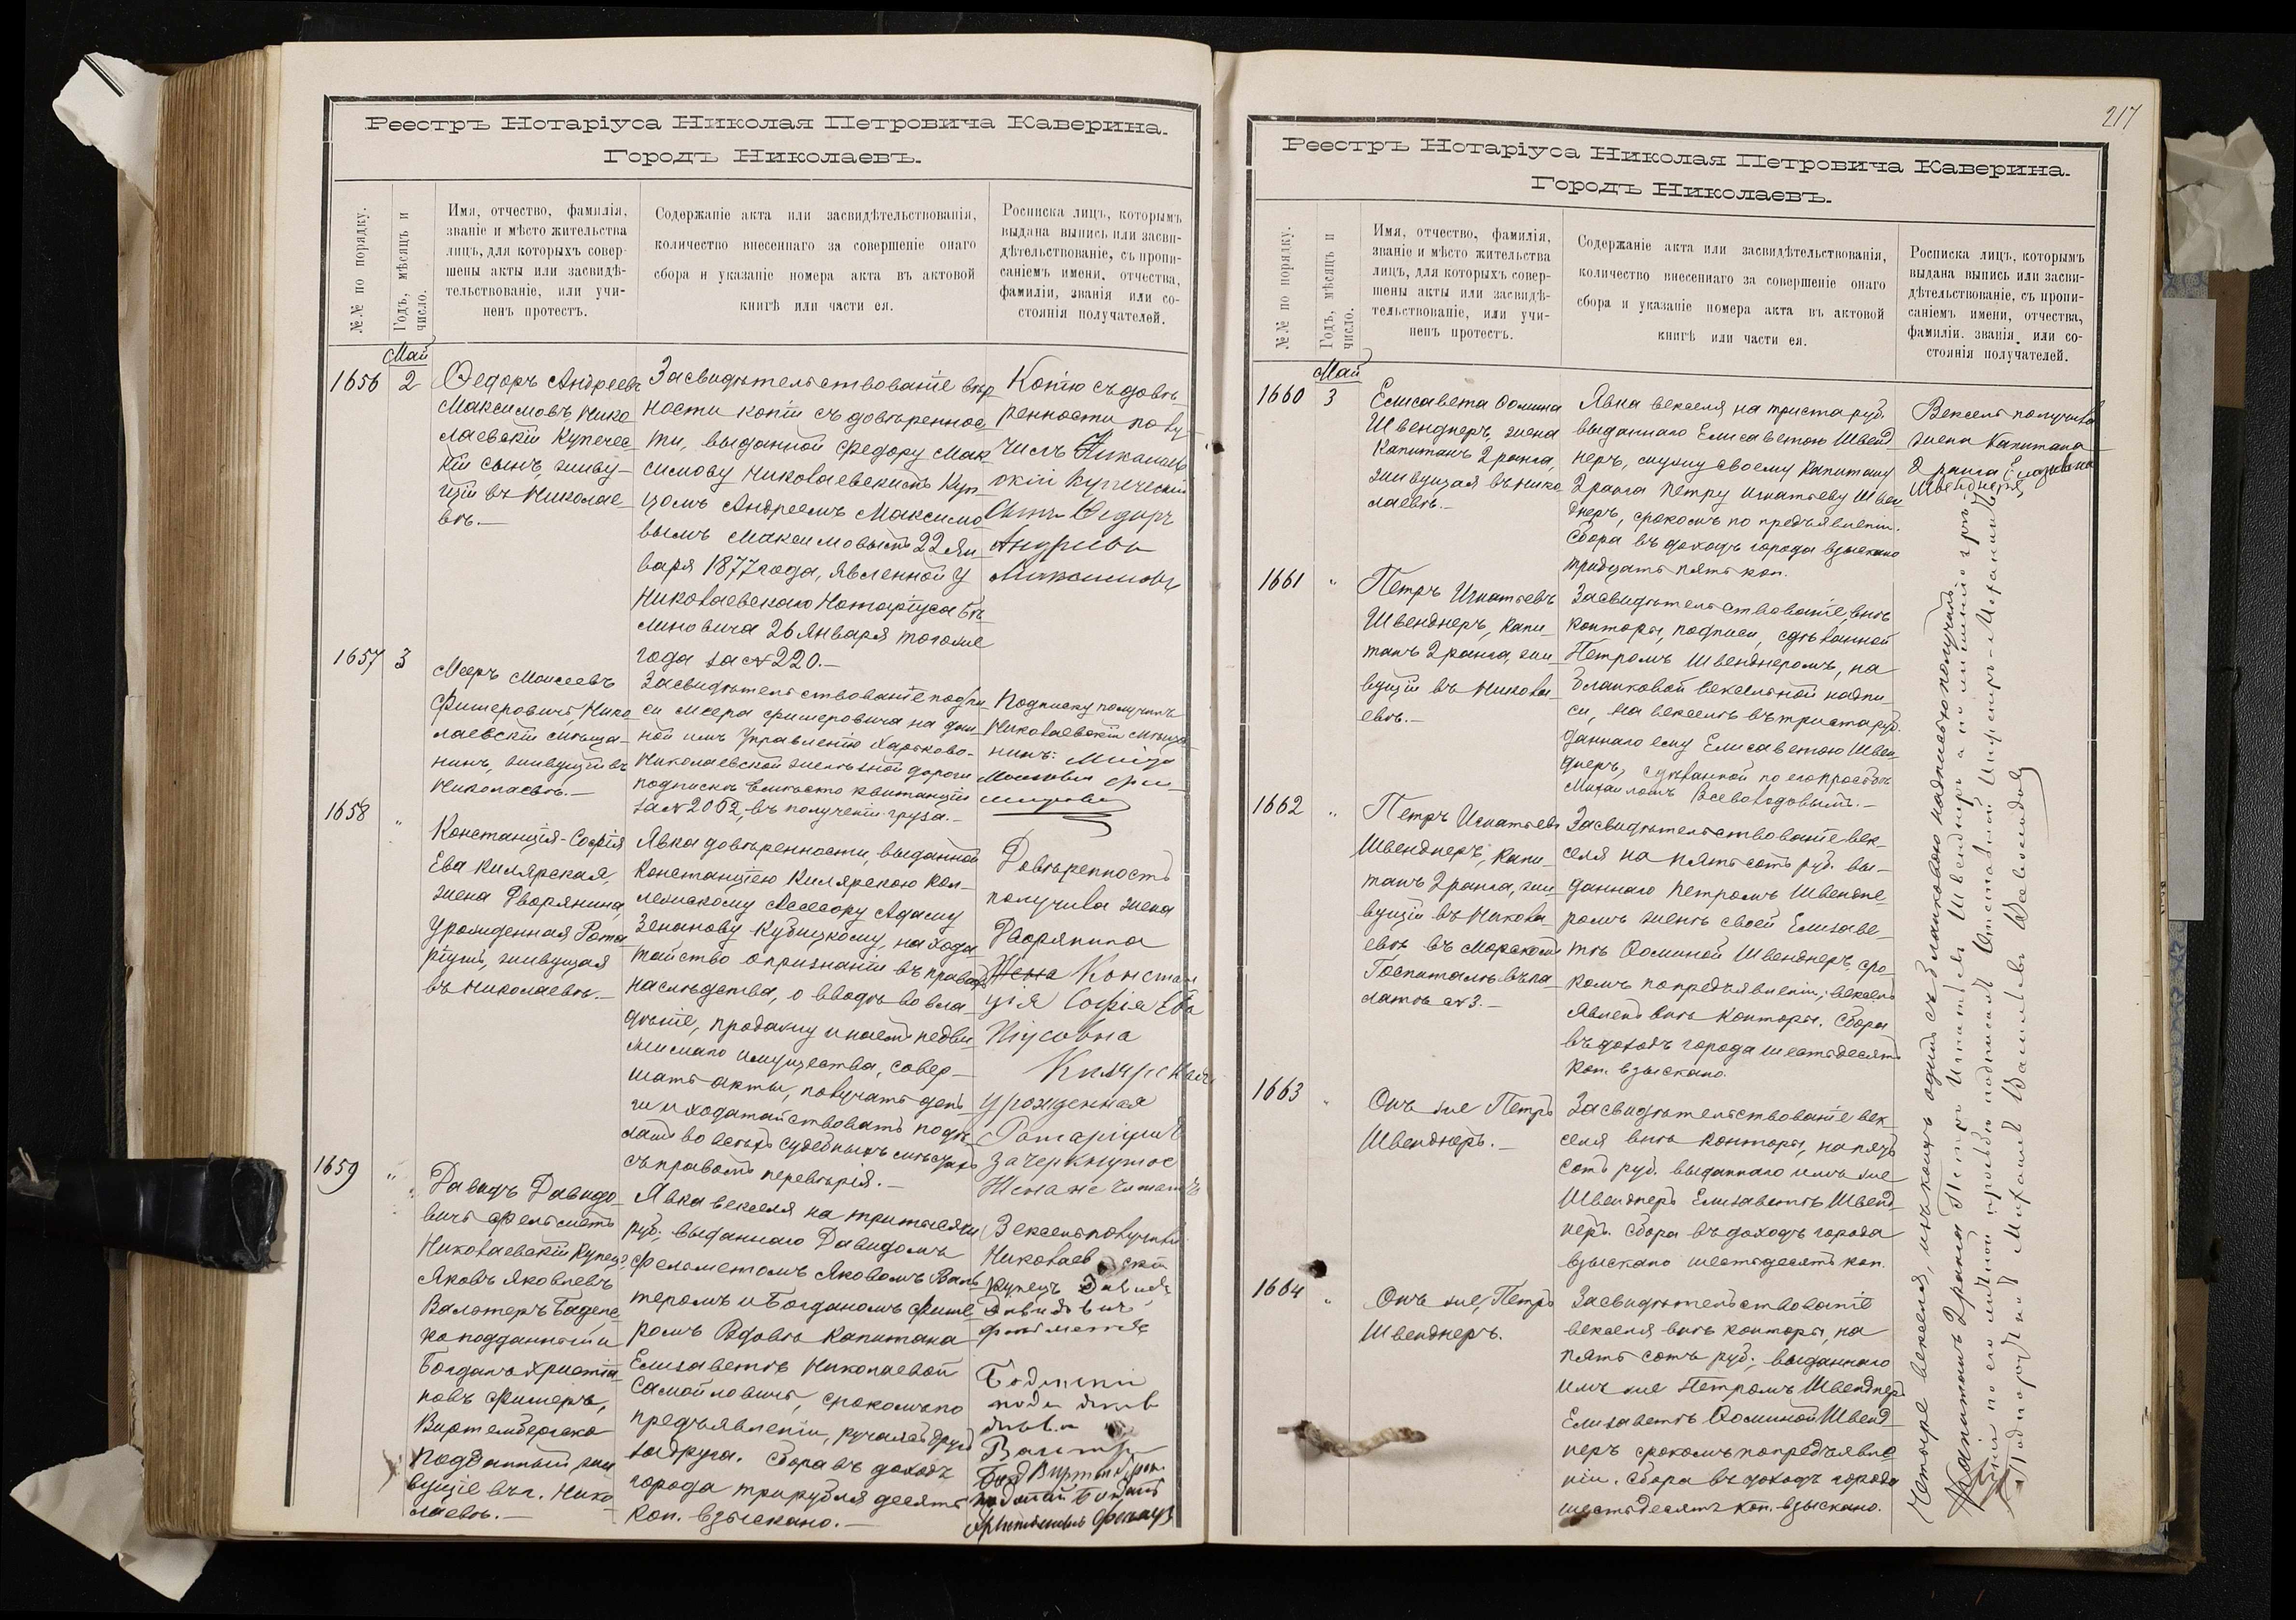 Реестръ Нотаріуса Николая Петровича Каверина.
Городъ Николаевъ.
№№ по порядку.
Годъ, мѣсяцъ и
число.
Имя, отчество, фамилія,
званіе и мѣсто жительства
лицъ, для которыхъ совер-
шены акты или засвидѣ-
тельствованіе, или учи-
ненъ протестъ.
Содержаніе акта или засвидѣтельствованія,
количество внесеннаго за совершеніе онаго
сбора и указаніе номера акта въ актовой
книгѣ или части ея.
Росписка лицъ, которымъ
выдана выпись или засви-
дѣтельствованіе, съ пропи-
саніемъ имени, отчества,
фамиліи, званія или со-
стоянія получателей.
Май
1656
2
Ѳедоръ Андреевъ
Максимовъ Нико
лаевскій Купечес
кій сынъ, живу-
щій въ Николае-
вѣ.-
Засвидѣтельствованіе вѣр
ности копіи съ довѣреннос
ти, выданной Федору Мак
симову Николаевскимъ Куп
цомъ Андреемъ Максимо
вымъ Максимовымъ 22 Ян
варя 1877 года, явленной у
Николаевскаго Нотаріуса
26 Января тогоже
года за №220.-
Копію съ довѣ
ренности полу
чилъ Николаев
скій Купеческій
Сынъ Ѳедоръ
Андреевъ
Максимовъ
1657
3
Мееръ Моисеевъ
Фишеровичъ, Нико
лаевскій мѣща-
нинъ, живущій въ
Николаевѣ.-
Засвидѣтельствованіе подпи
си Меера Фишеровича на дан
ной имъ Управленію Харьково-
Николаевской желѣзной дороги
подпискѣ вмѣсто квитанціи
за №2062, въ полученіи груза.-
Подписку получилъ
Николаевскій мѣща
нинъ:
1658
"
Констанція-Софія
Ева Килярская,
жена Дворянина
урожденная Рота
ріушъ, живущая
въ Николаевѣ.-
Явка довѣренности, выданной
Констанціею Килярскою Кол-
лежскому Ассесору Адаму
Зенанову Кубицкому, на хода
тайство о признаніи въ правахъ
наслѣдства, о вводѣ во вла-
дѣніе, продажу и наемъ недви
жимаго имущества, совер-
шать акты, получать день
ги и ходатайствовать по дѣ
ламъ во всѣхъ судебныхъ мѣстахъ
съ правомъ перевѣрія.-
Довѣренность
получила жена
Дворянина
Жена Констан
ція Софія Ева
Піусовна
Килярская
урожденная
Ротаріушъ
зачеркнутое
Жена не читать
1659
"
Давидъ Давидо
вичъ Фельсметъ
Николаевскій Купецъ,
Яковъ Яковлевъ
Вальтеръ Баденс
ко подданный и
Богданъ Христіа
новъ Фишеръ,
Виртембергско
подданный, жи
вущіе въ г. Нико
лаевѣ.-
Явка векселя на три тысячи
руб; выданнаго Давидомъ
Фельсметомъ Яковомъ Валь
теромъ и Богданомъ Фише
ромъ Вдовѣ Капитана
Елизаветѣ Николаевой
Самойловичъ, срокомъ по
предъявленіи, ручаясь другъ
за друга. Сбора въ доходъ
города три рубля десять
коп. взыскано.-
Вексель получилъ
Николаевскій
Купецъ Давидъ
Давидовичъ
Фельсметъ
217
Реестръ Нотаріуса Николая Петровича Каверина.
Городъ Николаевъ.
№№ по порядку.
Годъ, мѣсяцъ и
число.
Имя, отчество, фамилія,
званіе и мѣсто жительства
лицъ, для которыхъ совер-
шены акты или засвидѣ-
тельствованіе, или учи-
ненъ протестъ.
Содержаніе акта или засвидѣтельствованія,
количество внесеннаго за совершеніе онаго
сбора и указаніе номера акта въ актовой
книгѣ или части ея.
Росписка лицъ, которымъ
выдана выпись или засви-
дѣтельствованіе, съ пропи-
саніемъ имени, отчества,
фамиліи. званія или со-
стоянія получателей.
Май
1660
3
Елисавета Ѳомина
Швенднеръ, жена
Капитанъ 2 ранга,
живущая въ Нико
лаевѣ.-
Явка векселя на триста руб.
выданнаго Елисаветою Швенд
неръ, мужу своему Капитану
2 ранга Петру Игнатьеву Швен
днеръ, срокомъ по предъявленіи.
Сбора въ доходъ города взыскано
тридцать пять коп.
Вексель получила
жена Капитана
2 ранга Елизавета
Швенднеръ,
1661
"
Петръ Игнатьевъ
Швенднеръ, Капи-
танъ 2 ранга, жи
вущій въ Никола
евѣ.-
Засвидѣтельствованіе, внѣ
конторы, подписи, сдѣланной
Петромъ Швенднеромъ, на
бланковой вексельной надпи
си, на векселѣ въ триста руб.
даннаго ему Елисаветою Швен
днеръ, сдѣланной по его просьбѣ
Михаиломъ Всеволодовымъ.-
1662
"
Петръ Игнатьевъ
Швенднеръ, Капи-
танъ 2 ранга, жи
вущій въ Никола
евѣ въ Морскомъ
Госпиталѣ въ па
латѣ №3.-
Засвидѣтельствованіе век-
селя на пять сотъ руб. вы-
даннаго Петромъ Швендне
ромъ женѣ своей Елизаве-
тѣ Ѳоминой Швенднеръ, сро-
комъ по предъявленіи; вексель
явленъ внѣ конторы. Сбора
въ доходъ города шестьдесятъ
коп. взыскано.
1663
"
Онъ же Петръ
Швенднеръ.-
Засвидѣтельствованіе век-
селя внѣ конторы, на пять
сотъ руб. выданнаго имъ же
Швенднеръ Елизаветѣ Швенд
неръ. Сбора въ доходъ города
взыскано шестьдесятъ коп.
1664
"
Онъ же, Петръ
Швенднеръ.
Засвидѣтельствованіе
векселя внѣ конторы, на
пять сотъ руб; выданнаго
имъ же Петромъ Швенднеръ
Елизаветѣ Ѳоминой Швенд-
неръ срокомъ по предъявле
ніи. Сбора въ доходъ города
шестьдесятъ коп. взыскано.
Четыре векселя, изъ коихъ одинъ съ бланковою надписью получилъ
Капитанъ 2 ранга Петръ Игнатьевъ Швенднеръ а по
по его личной просьбѣ подписалъ Отставной Инженеръ-Механикъ
Подпоручикъ Михаилъ Васильевъ Всеволодовъ